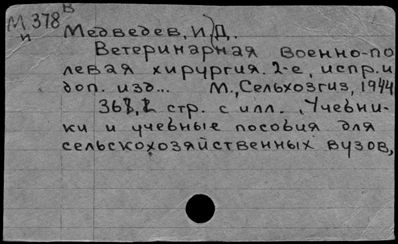 В
М 378
и
Медведев, И.Д.
Ветеринарная военно-по
левая хирургия. 2-е, испр. и
доп. изд... М., Сельхозгиз, 1944
368,2 стр. с илл. , Учебни-
ки и учебные пособия для
сельскохозяйственных вузов,